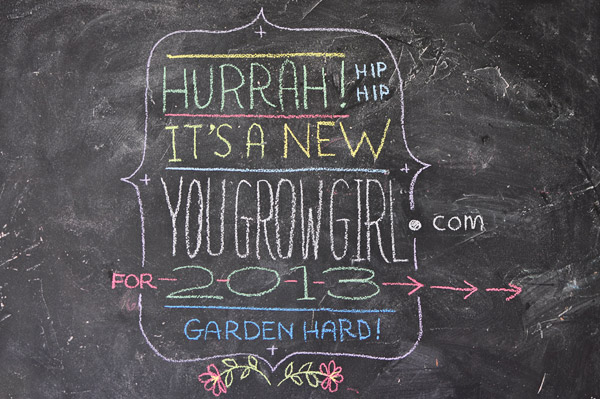 HURRAH! HIP HIP
IT'S A NEW
YOUGROWGIRL.com
FOR 2013
GARDEN HARD!